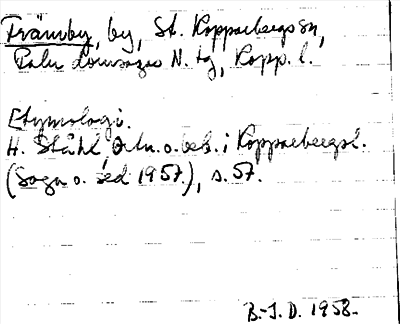 Främby, by, St. Kopparbergs sn,
Falu domsagas N. tg, Kopp. l.
Etymologi.
H. Ståhl, Ortn. o. beb. i Kopparbergst.
(Saga o. sed 1957.), s. 57.
B.-J. D. 1958.